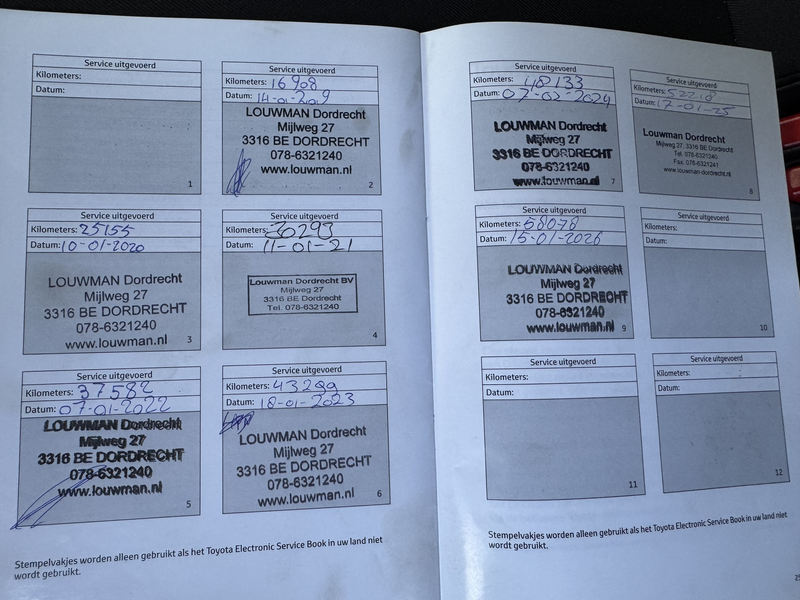 Service uitgevoerd
Kilometers:
Datum:
1
Service uitgevoerd
Kilometers: 16908
Datum: 14-01-2019
LOUWMAN Dordrecht
Mijlweg 27
3316 BE DORDRECHT
078-6321240
www.louwman.nl
2
Service uitgevoerd
Kilometers: 25155
Datum: 10-01-2020
LOUWMAN Dordrecht
Mijlweg 27
3316 BE DORDRECHT
078-6321240
www.louwman.nl
3
Service uitgevoerd
Kilometers: 30293
Datum: 11-01-21
Louwman Dordrecht BV
Mijlweg 27
3316 BE Dordrecht
Tel. 078-6321240
4
Service uitgevoerd
Kilometers: 37582
Datum: 07-01-2022
LOUWMAN Dordrecht
Mijlweg 27
3316 BE DORDRECHT
078-6321240
www.louwman.nl
5
Service uitgevoerd
Kilometers: 43299
Datum: 18-01-2023
LOUWMAN Dordrecht
Mijlweg 27
3316 BE DORDRECHT
078-6321240
www.louwman.nl
6
Stempelvakjes worden alleen gebruikt als het Toyota Electronic Service Book in uw land niet
wordt gebruikt.
Service uitgevoerd
Kilometers: 48133
Datum: 07-02-2024
LOUWMAN Dordrecht
Mijlweg 27
3316 BE DORDRECHT
078-6321240
www.louwman.nl
7
Service uitgevoerd
Kilometers: 52218
Datum: 17-01-25
LOUWMAN Dordrecht
Mijlweg 27, 3316 BE Dordrecht
Tel. 078-6321240
Fax. 078-6321241
www.louwman-dordrecht.nl
8
Service uitgevoerd
Kilometers: 58078
Datum: 15-01-2026
LOUWMAN Dordrecht
Mijlweg 27
3316 BE DORDRECHT
078-6321240
www.louwman.nl
9
Service uitgevoerd
Kilometers:
Datum:
10
Service uitgevoerd
Kilometers:
Datum:
11
Service uitgevoerd
Kilometers:
Datum:
12
Stempelvakjes worden alleen gebruikt als het Toyota Electronic Service Book in uw land niet
wordt gebruikt.